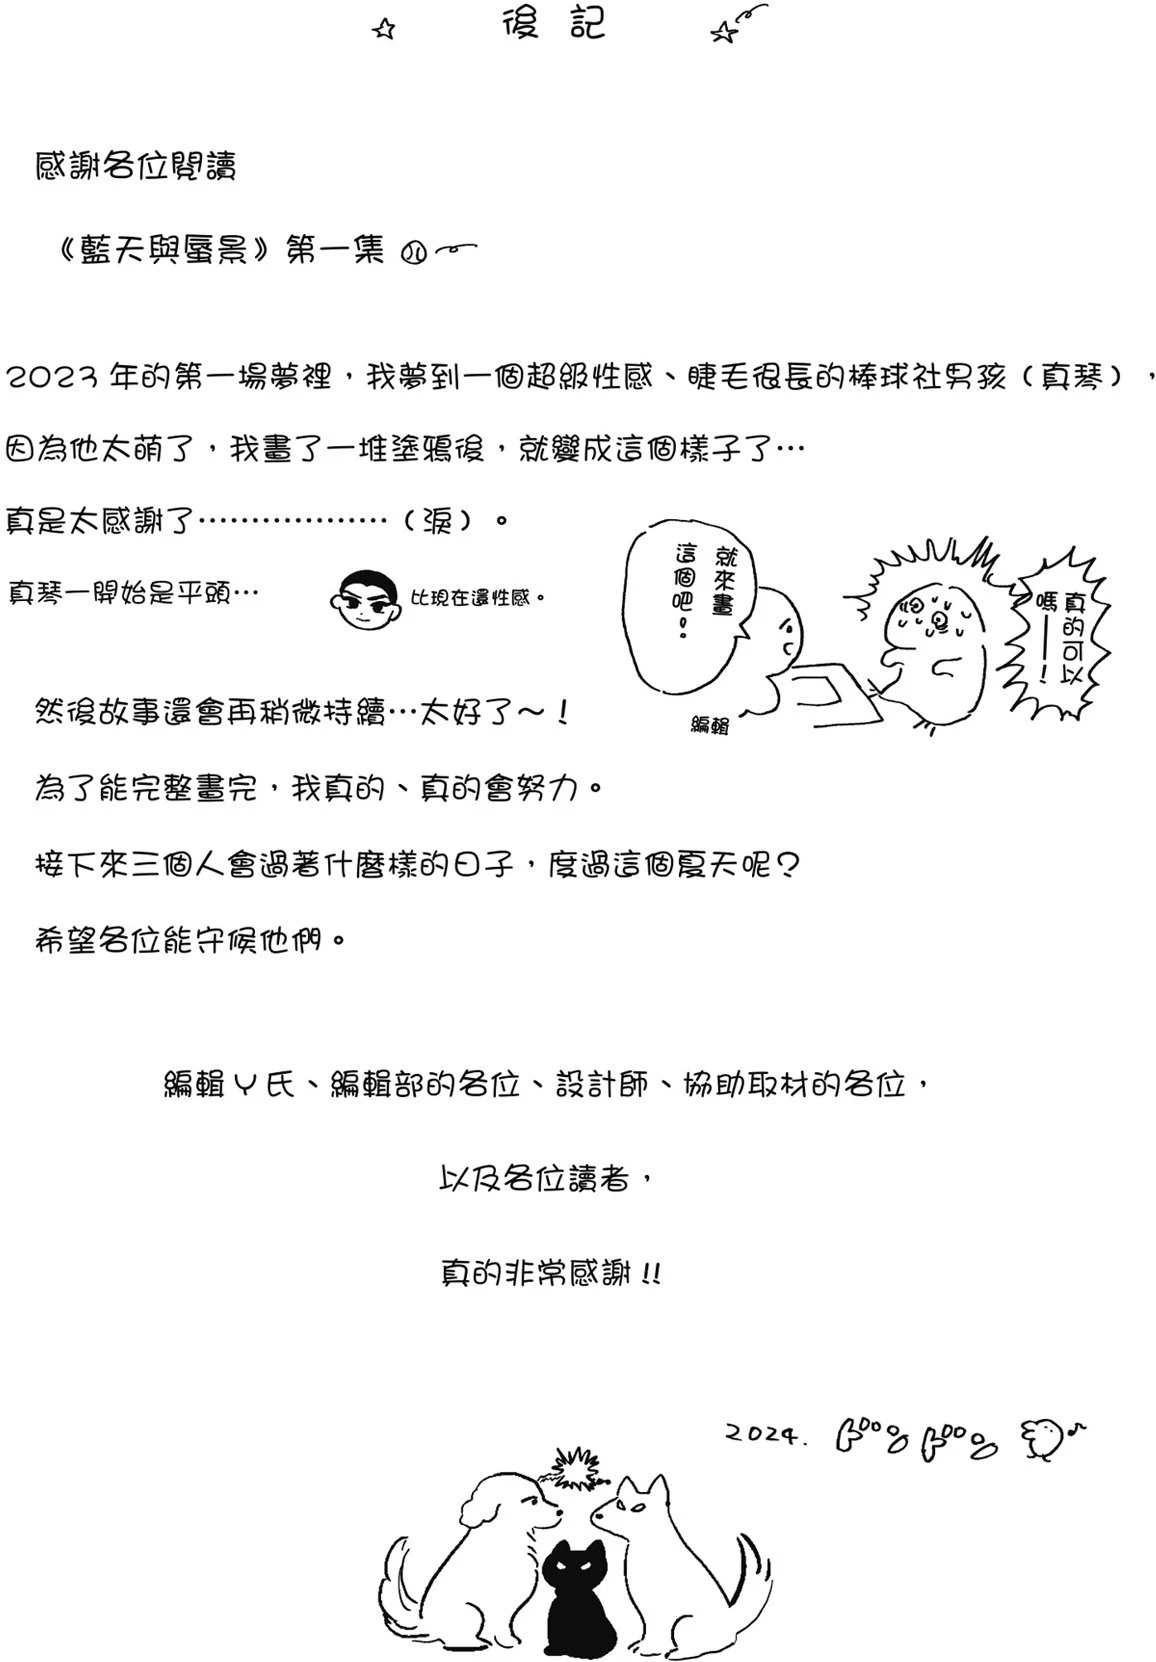 後記
感謝各位閱讀
《藍天與蜃景》第一集
2023年的第一場夢裡,我夢到一個超級性感、睫毛很長的棒球社男孩(真琴),
因為他太萌了,我畫了一堆塗鴉後,就變成這個樣子了…
真是太感謝了………………(淚)。
真琴一開始是平頭…
比現在還性感。
真的可以
嗎——!
就來畫
這個吧!
編輯
然後故事還會再稍微持續…太好了~!
為了能完整畫完,我真的、真的會努力。
接下來三個人會過著什麼樣的日子,度過這個夏天呢?
希望各位能守候他們。
編輯Y氏、編輯部的各位、設計師、協助取材的各位,
以及各位讀者,
真的非常感謝!!
2024. ドンドン